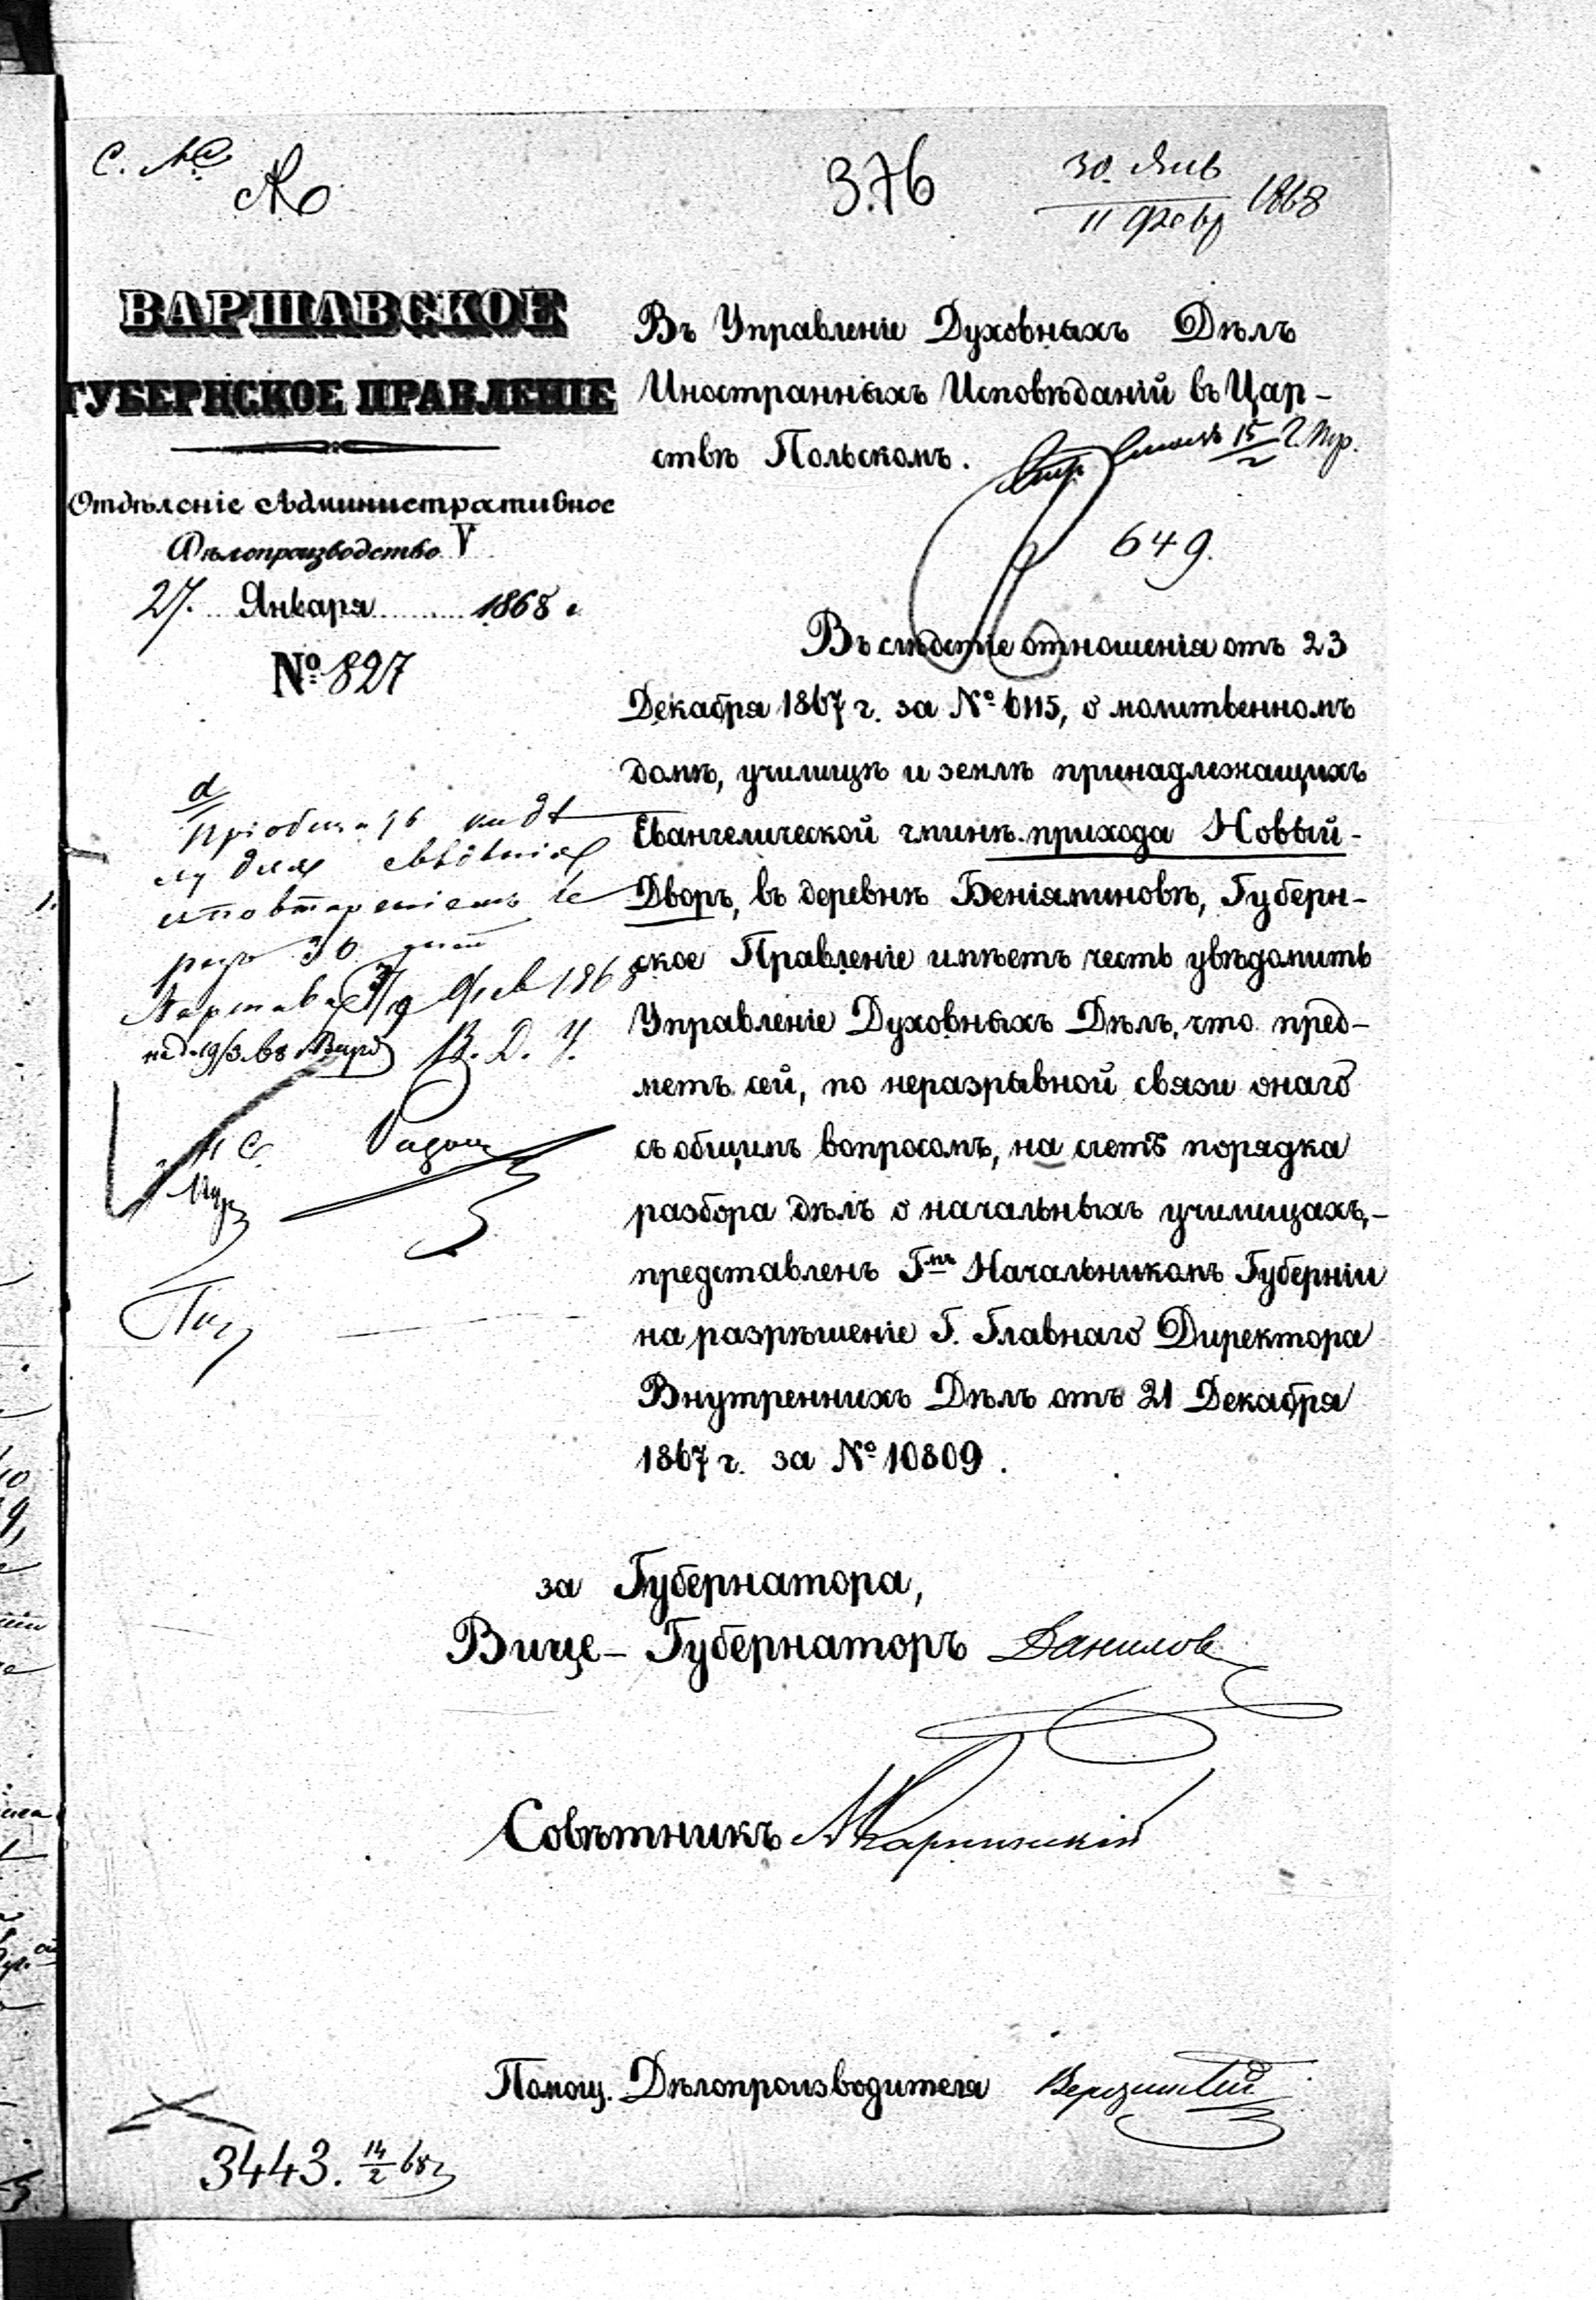 376
30. Янв
11 Февр 1868
ВАРШАВСКОЕ
ГУБЕРНСКОЕ ПРАВЛЕНІЕ
Отдѣленіе Административное
Дѣлопроизводство V
27. Января 1868 г.
№ 827
Въ Управленіе Духовныхъ Дѣлъ
Иностранныхъ Исповѣданій въ Цар-
ствѣ Польскомъ.
649.
Въ слѣдстіе отношенія отъ 23
Декабря 1867 г. за № 6115, о молитвенномъ
домѣ, училищѣ и землѣ принадлежащихъ
Евангелической гминѣ прихода Новый-
Дворъ, въ деревнѣ Беніяминовѣ, Губерн-
ское Правленіе имѣетъ честь увѣдомить
Управленіе Духовныхъ Дѣлъ, что пред-
метъ сей, по неразрывной связи онаго
съ общимъ вопросомъ, на счетъ порядка
разбора дѣлъ о начальныхъ училищахъ,-
представленъ Г.мъ Начальникомъ Губерніи
на разрѣшеніе Г. Главнаго Директора
Внутреннихъ Дѣлъ отъ 21 Декабря
1867 г. за № 10809.
Пріобщить къ дѣ
лу для свѣдѣнія
съ повтореніемъ че
резъ 30 дней
Варшава Фев 1868
В. Д. У.
за Губернатора,
Вице-Губернаторъ Данилов
Совѣтникъ
Помощ. Дѣлопроизводителя
3443. 14/2 68